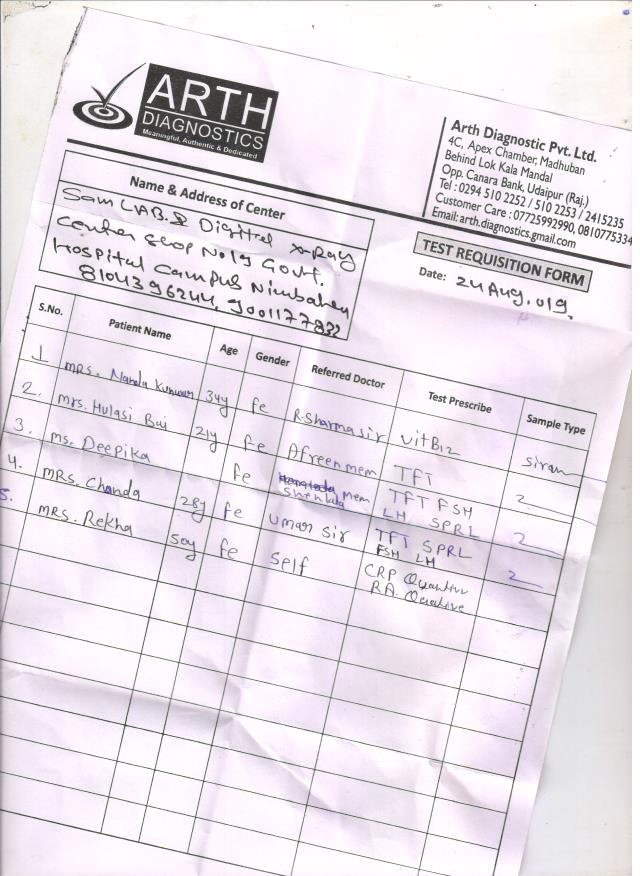 ARTH
DIAGNOSTICS
Meaningful, Authentic & Dedicated
Arth Diagnostic Pvt. Ltd.
4C, Apex Chamber, Madhuban
Behind Lok Kala Mandal
Opp. Canara Bank, Udaipur (Raj.)
Tel : 0294 510 2252 / 510 2253 / 2415235
Customer Care : 07725992990, 0810775334
Email: arth.diagnostics.gmail.com
Name & Address of Center
Sam LAB. & Digital X-Ray
Center Shop No 19 Govt.
Hospital Campus Nimbahera
8104396244, 9001177832
TEST REQUISITION FORM
Date: 24 Aug. 019.
S.No. Patient Name Age Gender Referred Doctor Test Prescribe Sample Type
1 Mrs. Nanda Kunwar 34y fe R. Sharma sir Vit B12 Siram
2. Mrs. Hulasi Bai 21y fe Afreen mem TFT
3. Ms. Deepika fe mem TFT FSH
LH SPRL
4. MRS. Chanda 28y fe Umar Sir TFT SPRL
FSH LH
5. MRS. Rekha 50y fe Self CRP
RA.